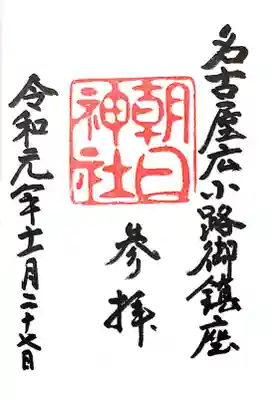 名古屋広小路御鎮座
朝日
神社
参拝
令和元年十一月二十七日